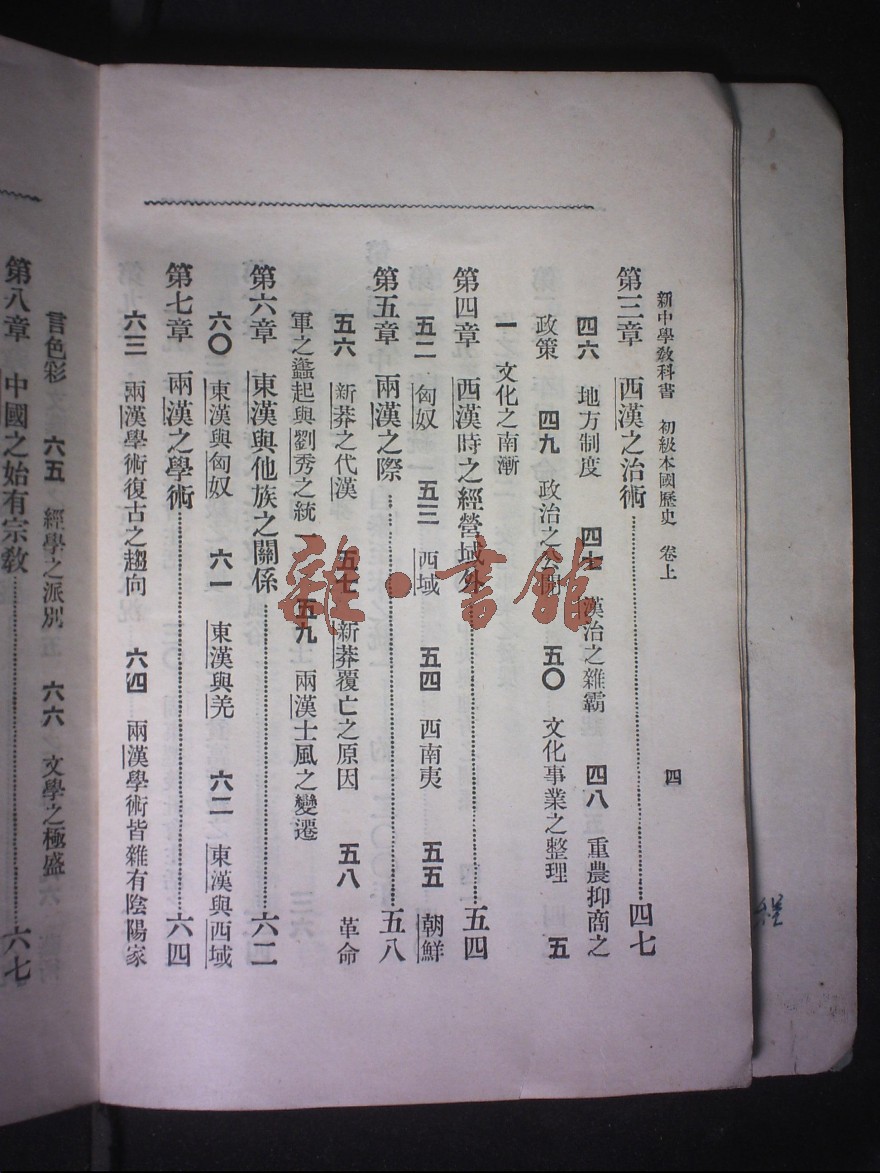 新中學教科書　初級本國歷史　卷上　四
第三章　西漢之治術……四七
四六　地方制度　四七　漢治之雜霸　四八　重農抑商之
政策　四九　政治之公開　五〇　文化事業之整理　五
一　文化之南漸
第四章　西漢時之經營域外……五四
五二　匈奴　五三　西域　五四　西南夷　五五　朝鮮
第五章　兩漢之際……五八
五六　新莽之代漢　五七　新莽覆亡之原因　五八　革命
軍之蠭起與劉秀之統一　五九　兩漢士風之變遷
第六章　東漢與他族之關係……六二
六〇　東漢與匈奴　六一　東漢與羌　六二　東漢與西域
第七章　兩漢之學術……六四
六三　兩漢學術復古之趨向　六四　兩漢學術皆雜有陰陽家
言色彩　六五　經學之派別　六六　文學之極盛
第八章　中國之始有宗教……六七
雜·書館